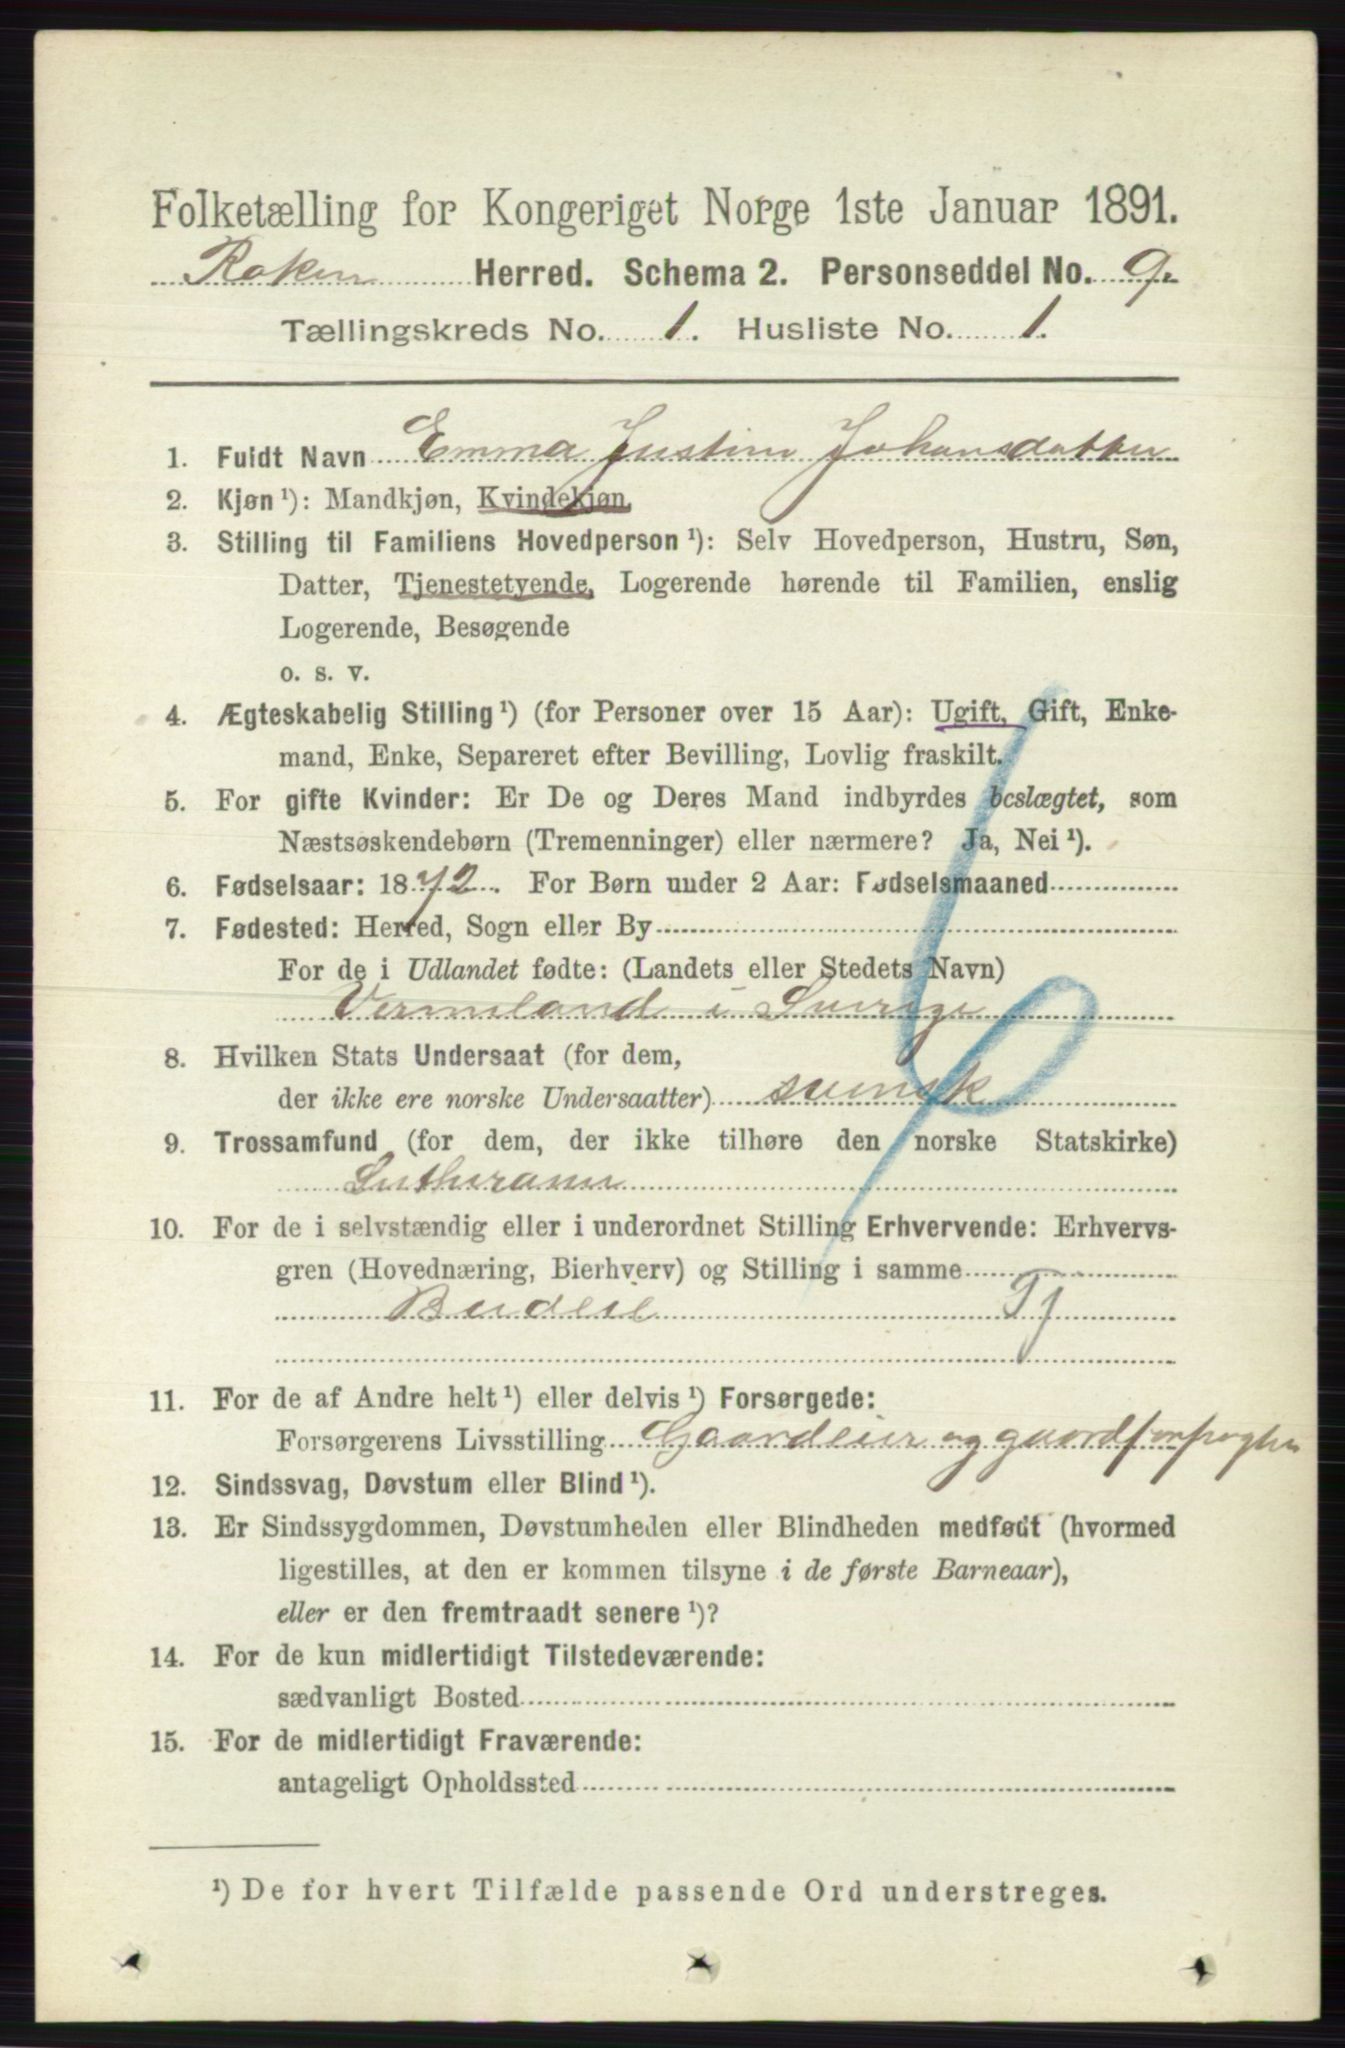 Folketælling for Kongeriget Norge 1ste Januar 1891.
Røken Herred. Schema 2. Personseddel No. 9.
Tællingskreds No. 1. Husliste No. 1.
1. Fuldt Navn Emma Justine Johansdatter
2. Kjøn¹): Mandkjøn, Kvindekjøn.
3. Stilling til Familiens Hovedperson¹): Selv Hovedperson, Hustru, Søn,
Datter, Tjenestetyende, Logerende hørende til Familien, enslig
Logerende, Besøgende
o. s. v.
4. Ægteskabelig Stilling¹) (for Personer over 15 Aar): Ugift, Gift, Enke-
mand, Enke, Separeret efter Bevilling, Lovlig fraskilt.
5. For gifte Kvinder: Er De og Deres Mand indbyrdes beslægtet, som
Næstsøskendebørn (Tremenninger) eller nærmere? Ja, Nei¹).
6. Fødselsaar: 1872. For Børn under 2 Aar: Fødselsmaaned
7. Fødested: Herred, Sogn eller By
For de i Udlandet fødte: (Landets eller Stedets Navn)
Vermeland i Sverige
8. Hvilken Stats Undersaat (for dem,
der ikke ere norske Undersaatter) svensk
9. Trossamfund (for dem, der ikke tilhøre den norske Statskirke)
Lutheraner
10. For de i selvstændig eller i underordnet Stilling Erhvervende: Erhvervs-
gren (Hovednæring, Bierhverv) og Stilling i samme
Budeie Tj
11. For de af Andre helt¹) eller delvis¹) Forsørgede:
Forsørgerens Livsstilling Gaardeier og gaardforpagter
12. Sindssvag, Døvstum eller Blind¹).
13. Er Sindssygdommen, Døvstumheden eller Blindheden medfødt (hvormed
ligestilles, at den er kommen tilsyne i de første Barneaar),
eller er den fremtraadt senere¹)?
14. For de kun midlertidigt Tilstedeværende:
sædvanligt Bosted
15. For de midlertidigt Fraværende:
antageligt Opholdssted
¹) De for hvert Tilfælde passende Ord understreges.